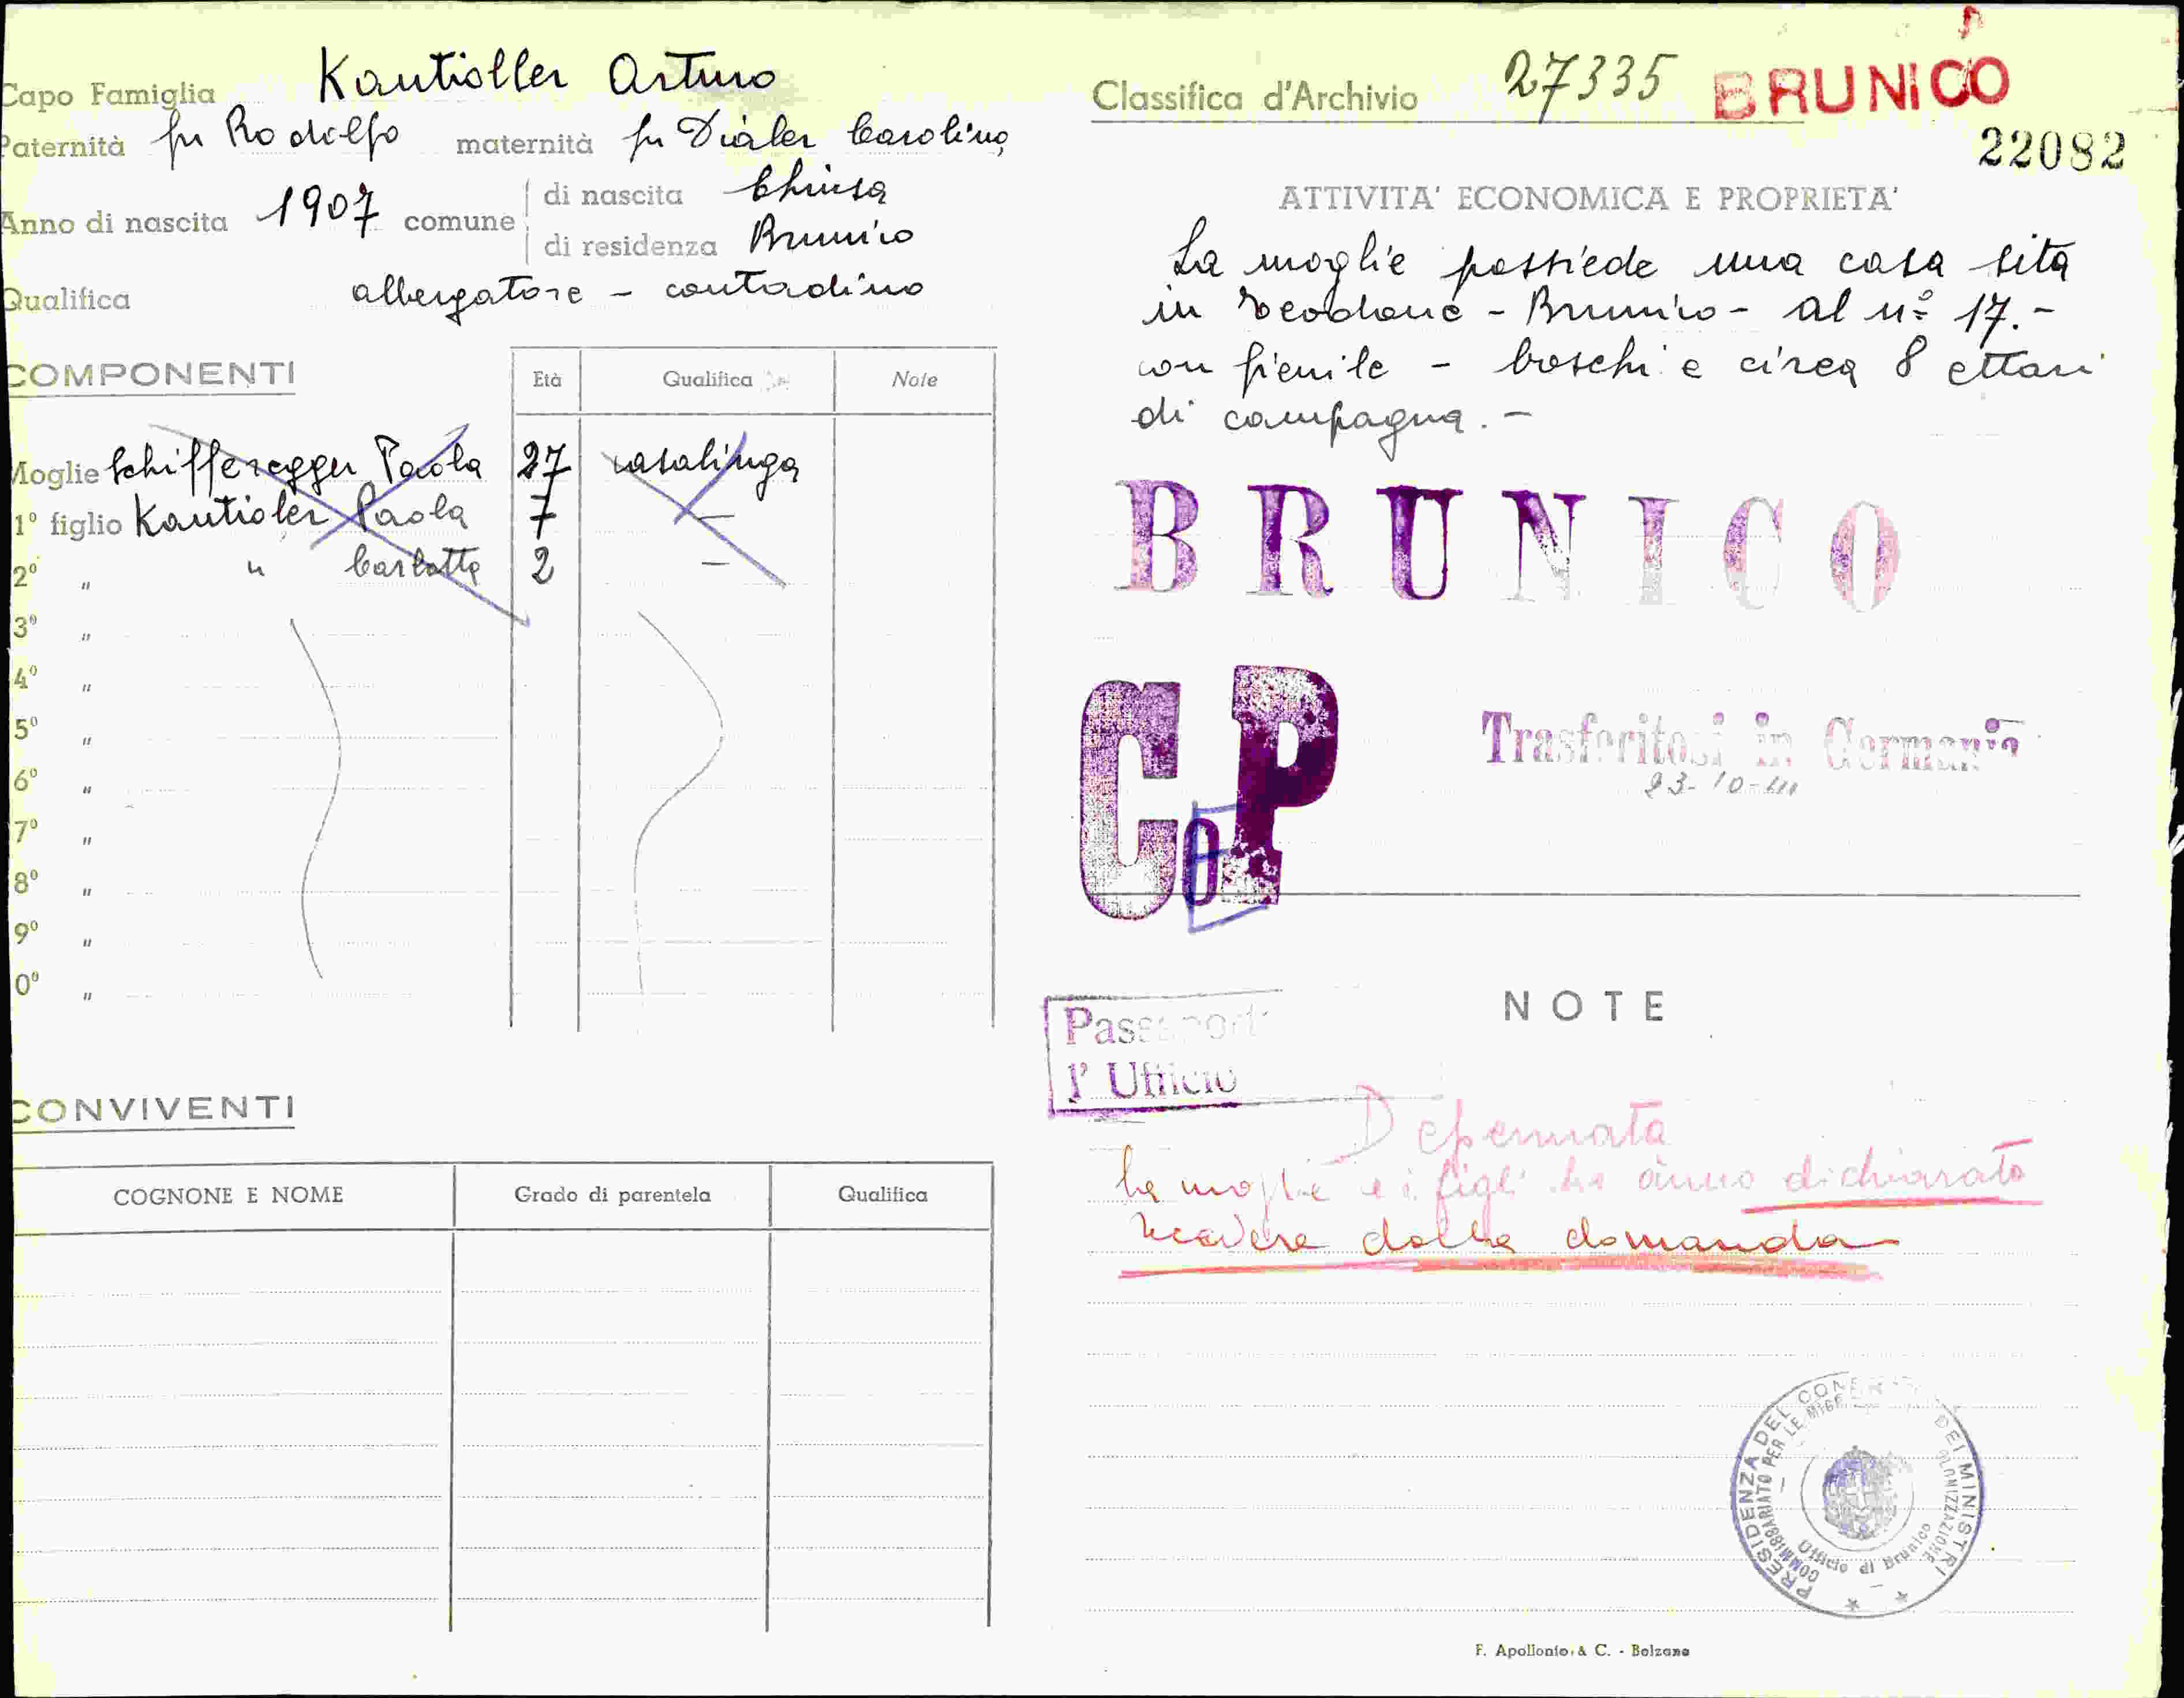 Capo Famiglia Kantioller Arturo
Paternità fu Rodolfo maternità fu Dialer Carolina
Anno di nascita 1907 comune di nascita Chiusa
di residenza Brunico
Qualifica albergatore - contadino
COMPONENTI Età Qualifica Note
Moglie Schifferegger Paola 27 casalinga
1º figlio Kantioler Paola 7 —
2º " " Carlotta 2 —
3º "
4º "
5º "
6º "
7º "
8º "
9º "
0º "
CONVIVENTI
COGNONE E NOME Grado di parentela Qualifica
Classifica d'Archivio 27335 BRUNICO
22082
ATTIVITA' ECONOMICA E PROPRIETA'
La moglie possiede una casa sita
in Teodone - Brunico - al nº 17.-
con fienile - boschi e circa 8 ettari
di campagna.-
BRUNICO
CoP
Trasferitosi in Germania
23-10-
NOTE
l' Ufficio
Depennata
la moglie e i figli hanno dichiarato
recedere dalla domanda
PRESIDENZA DEL CONS DEI MINISTRI
COMMISSARIATO PER LE MIGR COLONIZZAZIONE
Ufficio di Brunico
F. Apollonio & C. - Bolzano